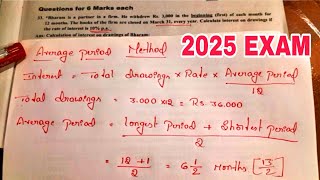 Questions for 6 Marks each
31. "Bharam is a partner in a firm. He withdraws Rs. 3,000 in the beginning (first) of each month for
12 months. The books of the firm are closed on March 31, every year. Calculate interest on drawings if
the rate of interest is 10% p.a.
Ans: Calculation of interest on drawings of Bharam:
2025 EXAM
Average period Method
Interest = Total drawings × Rate × Average Period / 12
Total drawings = 3.000 × 12 = Rs. 36.000
Average Period = longest Period + Shortest period / 2
= 12 + 1 / 2 = 6 1/2 Months [13/2]